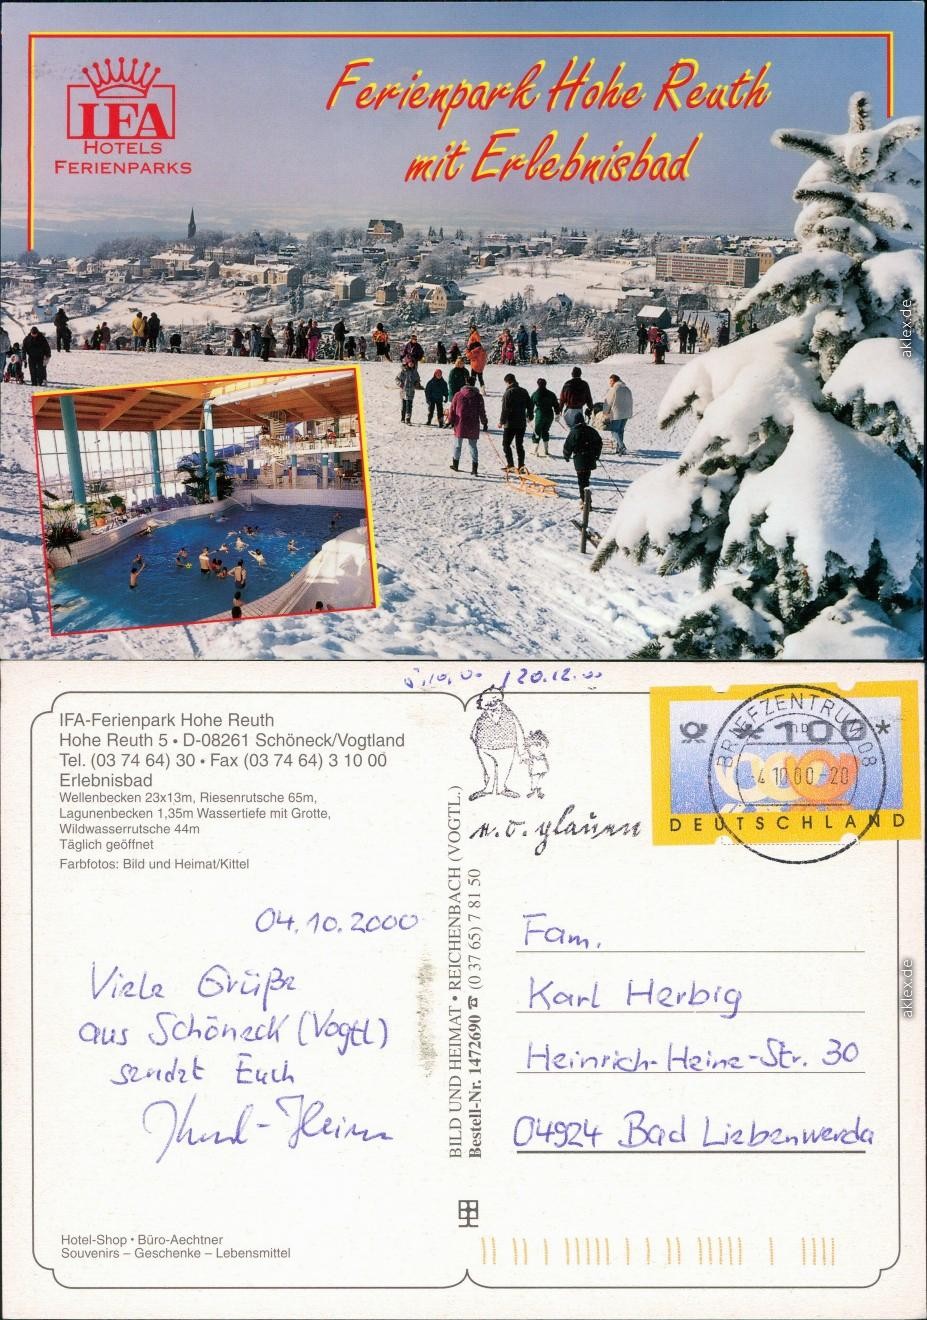 IFA
HOTELS
FERIENPARKS
Ferienpark Hohe Reuth
mit Erlebnisbad
aklex.de
IFA-Ferienpark Hohe Reuth
Hohe Reuth 5 • D-08261 Schöneck/Vogtland
Tel. (03 74 64) 30 • Fax (03 74 64) 3 10 00
Erlebnisbad
Wellenbecken 23x13m, Riesenrutsche 65m,
Lagunenbecken 1,35m Wassertiefe mit Grotte,
Wildwasserrutsche 44m
Täglich geöffnet
Farbfotos: Bild und Heimat/Kittel
04.10.2000
Viele Grüße
aus Schöneck (Vogtl)
sendet Euch
Hotel-Shop • Büro-Aechtner
Souvenirs – Geschenke – Lebensmittel
BILD UND HEIMAT • REICHENBACH (VOGTL.)
Bestell-Nr. 1472690 ☎ (0 37 65) 7 81 50
20.12.00
e.o.plauen
BRIEFZENTRUM 08
*100*
-4.10.00-20
DEUTSCHLAND
Fam.
Karl Herbig
Heinrich-Heine-Str. 30
04924 Bad Liebenwerda
aklex.de